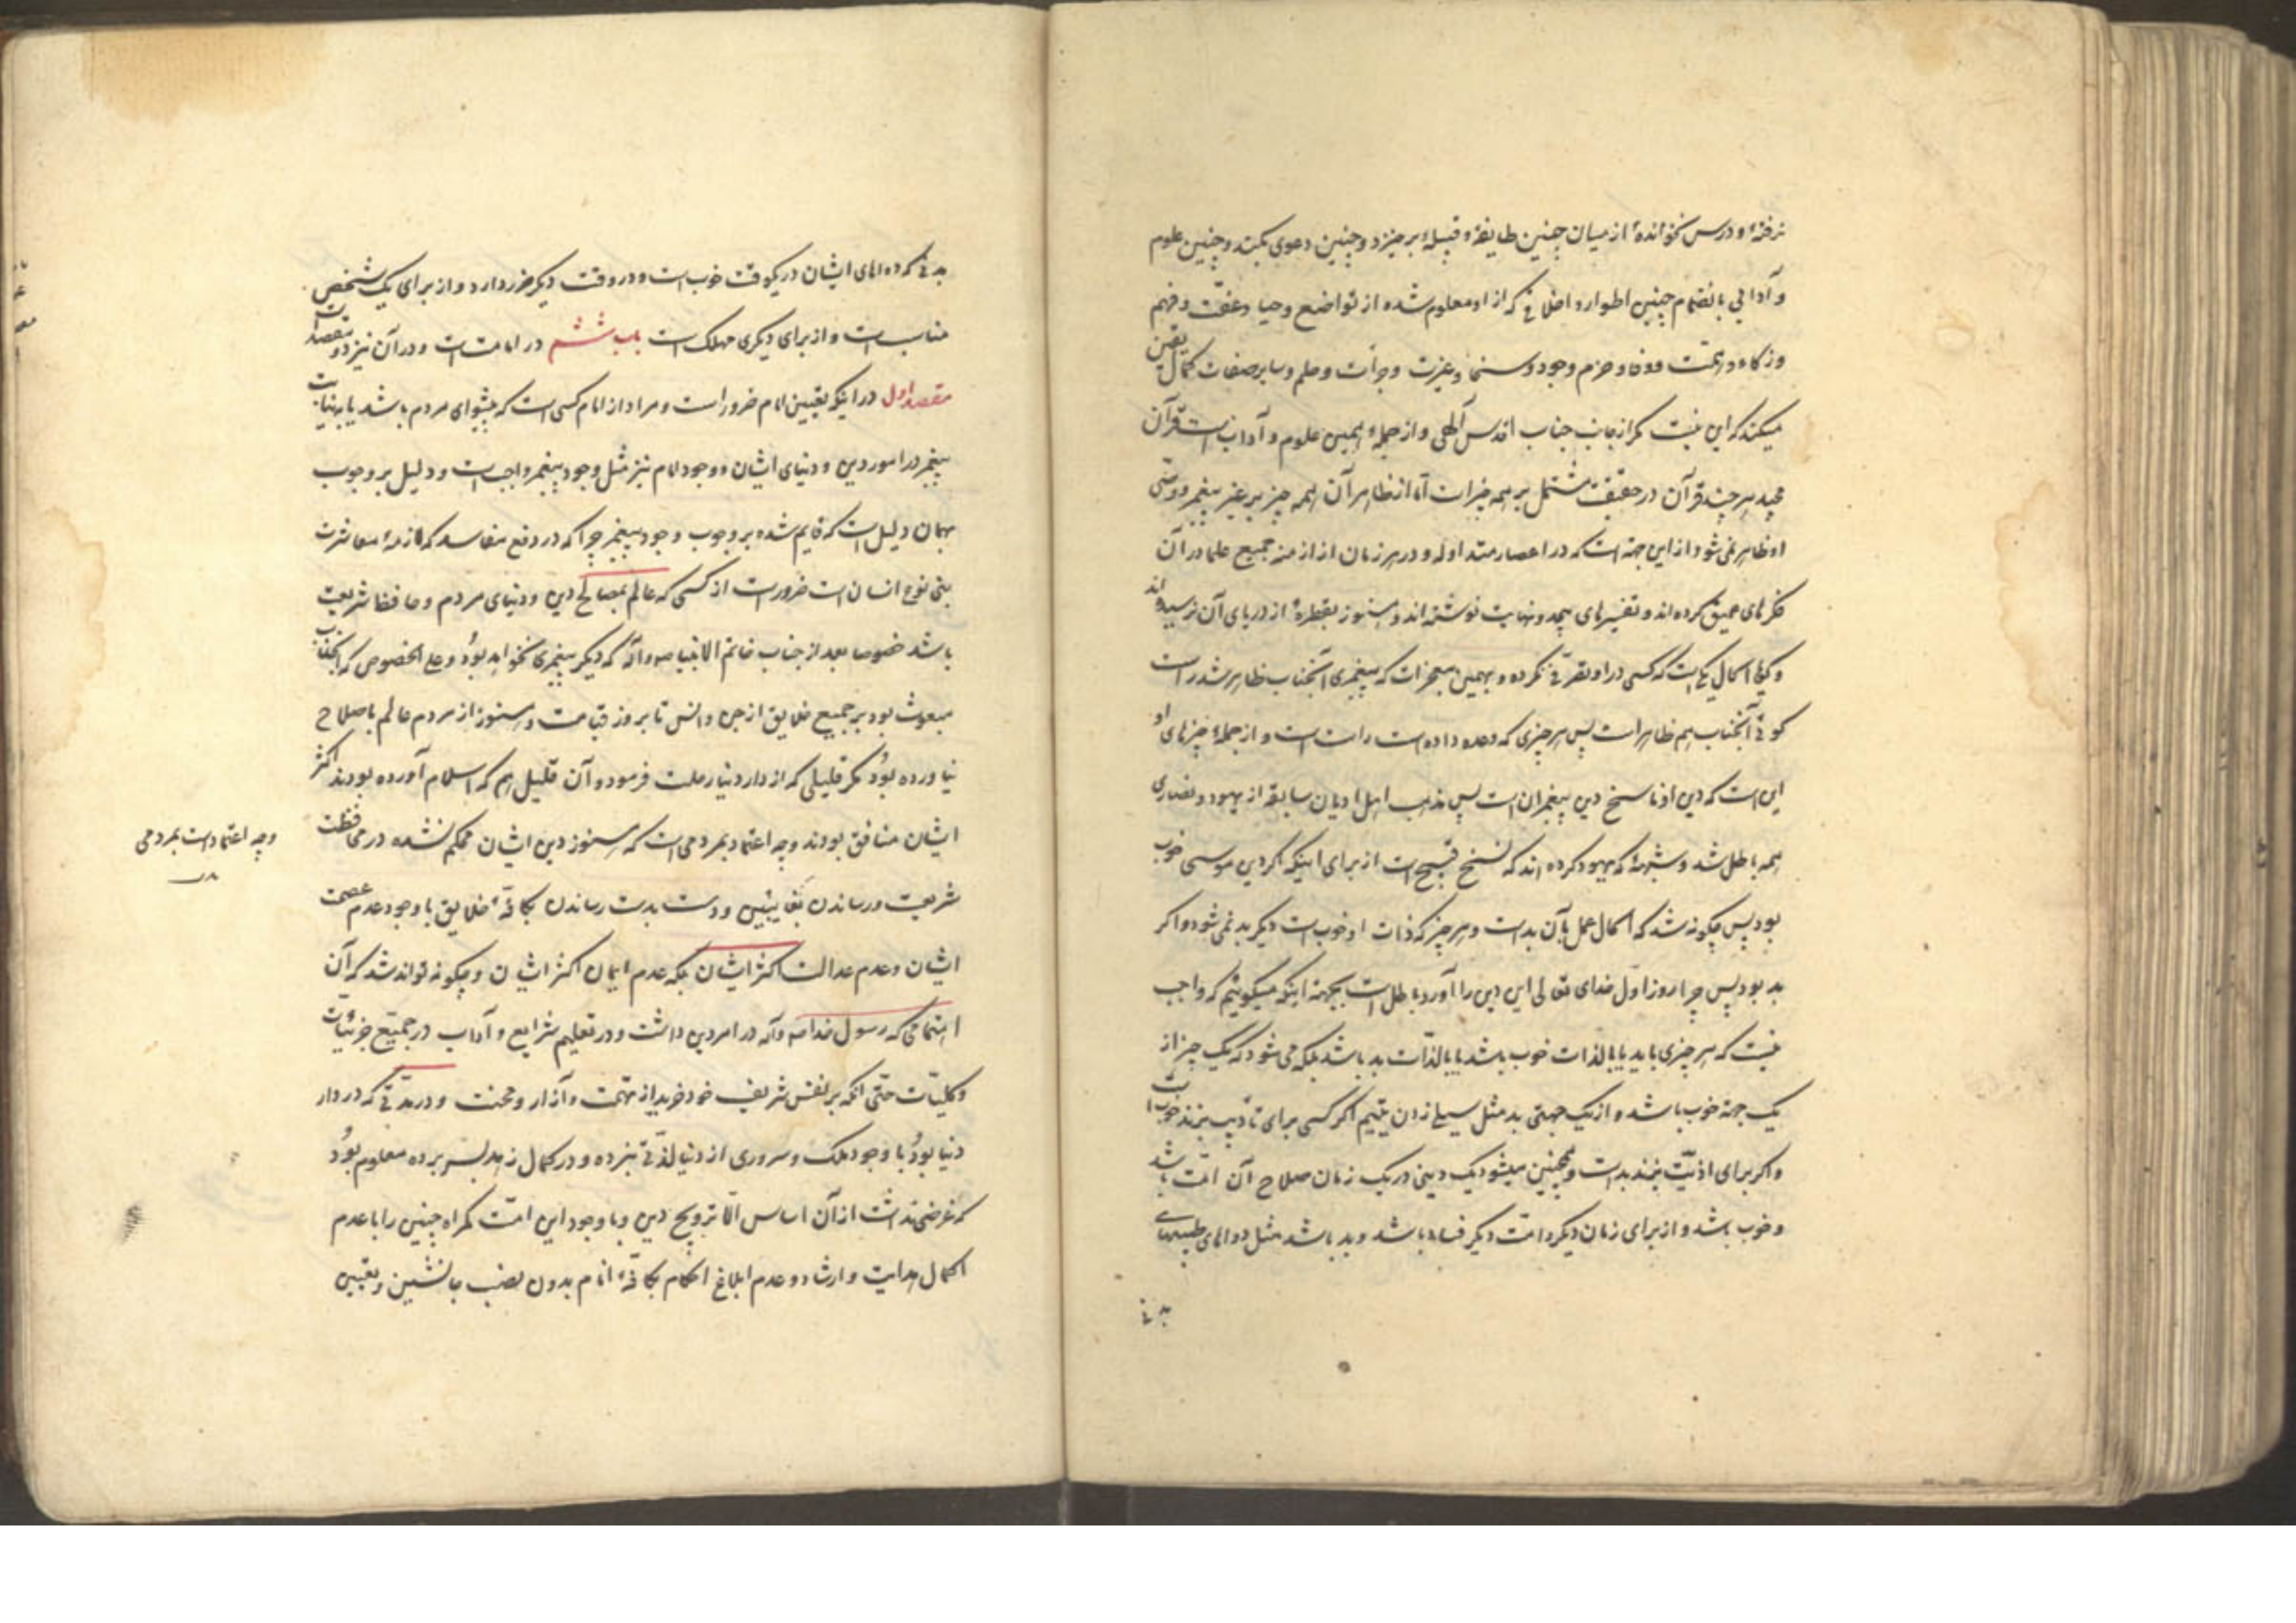 نرفتهٔ و درس نخواندهٔ از میان چنین طایفهٔ و قبیلهٔ برخیزد و چنین دعوی بکند و چنین علوم
و آدابی بانضمام چنین اطوار و اخلاقی که از او معلوم شده از تواضع و حیا و عفّت و فهم
و زکاء و همّت و وفا و حزم و جود و سخا و غیرت و جرأت و حلم و سایر صفات کمال یقین
میکند که این نیست مگر از جانب جناب اقدس آلهی و از جملهٔ همین علوم و آدابست قرآن
مجید هر چند قرآن در حقیقت مشتمل بر همه چیز است امّا از ظاهر آن همه چیز بر غیر پیغمبر و وصّی
او ظاهر نمی شود از این جهة است که در اعصار متداوله و در هر زمان از ازمنه جمیع علما در آن
فکرهای عمیق کرده اند و تفسیرهای بیحد و نهایت نوشته اند و هنوز بقطرهٔ از دریای آن نرسیده اند
و گویا کمال یکیست که کسی در او تصرّفی نکرده و بهمین معجزات که پیغمبری آنجناب ظاهر شد راست
گوئی آنجناب هم ظاهر است پس هر چیزی که وعده داده است راست است و از جملهٔ چیزهای او
این است که دین او ناسخ دین پیغمبران است پس مذهب اهل ادیان سابقه از یهود و نصاری
همه باطل شد و شبههٔ که یهود کرده اند که نسخ قبیح است از برای اینکه اگر دین موسی خوب
بود پس چگونه شد که الحال عمل بآن بد است و هر چیز که ذات او خوب است دیگر بد نمی شود و اگر
بد بود پس چرا روز اول خدای تعالی این دین را آورد باطل است بجهة اینکه میگوئیم که واجب
نیست که هر چیزی باید یا بالذات خوب باشد یا بالذّات بد باشد بلکه می شود که یک چیز از
یک جهة خوب باشد و از یک جهتی بد مثل سیلی زدن یتیم اگر کسی برای تأدیب بزند خوب است
و اگر برای اذیّت بزند بد است و همچنین میشود یک دینی در یک زمان صلاح آن امّت باشد
و خوب باشد و از برای زمان دیگر و امّت دیگر فساد باشد و بد باشد مثل دواهای طبیبهای
بدنی
بدنی که دواهای ایشان در یکوقت خوب است و در وقت دیگر ضرر دارد و از برای یک شخص
مناسب است و از برای دیگری مهلک است باب ششم در امامت است و در آن نیز دو مقصد است
مقصد اول در اینکه تعیین امام ضرور است و مراد از امام کسی است که پیشوای مردم باشد یا به نیابت
پیغمبر در امور دین و دنیای ایشان و وجود امام نیز مثل وجود پیغمبر واجب است و دلیل بر وجوب
همان دلیل است که قایم شده بر وجوب وجود پیغمبر چرا که در دفع مفاسد که لازمهٔ معاشرت
بنی نوع انسان است ضرور است از کسی که عالم بمصالح دین و دنیای مردم و حافظ شریعت
باشد خصوصا بعد از جناب خاتم الانبیا ص و آله که دیگر پیغمبری نخواهد بود و علی الخصوص که آنجناب
مبعوث بود بر جمیع خلایق از جن و انس تا بروز قیامت و هنوز از مردم عالم باصلاح
نیاورده بود مگر قلیلی که از دار دنیا رحلت فرمود و آن قلیل هم که اسلام آورده بودند اکثر
ایشان منافق بودند و چه اعتماد بمردمی است که هنوز دین ایشان محکم نشده در محافظت
شریعت و رساندن بغایبین و دست بدست رساندن بکافّهٔ خلایق با وجود عدم عصمت
ایشان و عدم عدالت اکثر ایشان بلکه عدم ایمان اکثر ایشان و چگونه تواند شد که آن
اهتمامی که رسول خدا ص و آله در امر دین داشت و در تعلیم شرایع و آداب در جمیع جزئیّات
و کلیّات حتّی آنکه بر نفس شریف خود خرید از تهمت و آزار و محنت و در مدّتی که در دار
دنیا بود با وجود ملک و سروری از دنیا لذّتی نبرده و در کمال زهد بسر برده معلوم بود
که غرضی نداشت از آن اساس الّا ترویج دین و با وجود این امّت گمراه چنین را با عدم
اکمال هدایت و ارشاد و عدم ابلاغ احکام بکافّهٔ انام بدون نصب جانشین و تعیین
وچه اعتماد است بمردمی